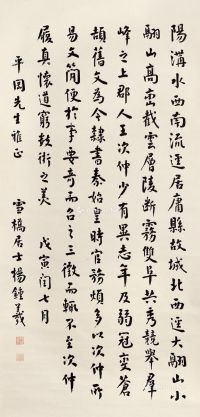 陽溝水西南流逕居庸縣故城北西逕大翮山小
翮山高巒截雲層陵斷霧雙阜共秀競舉群
峰之上郡人王次仲少有異志年及弱冠變蒼
頡舊文為今隸書秦始皇時官務煩多以次仲所
易文簡便於事要奇而召之三徵而輒不至次仲
履真懷道窮數術之美 戊寅閏七月
平園先生雅正
雪橋居士楊鍾羲